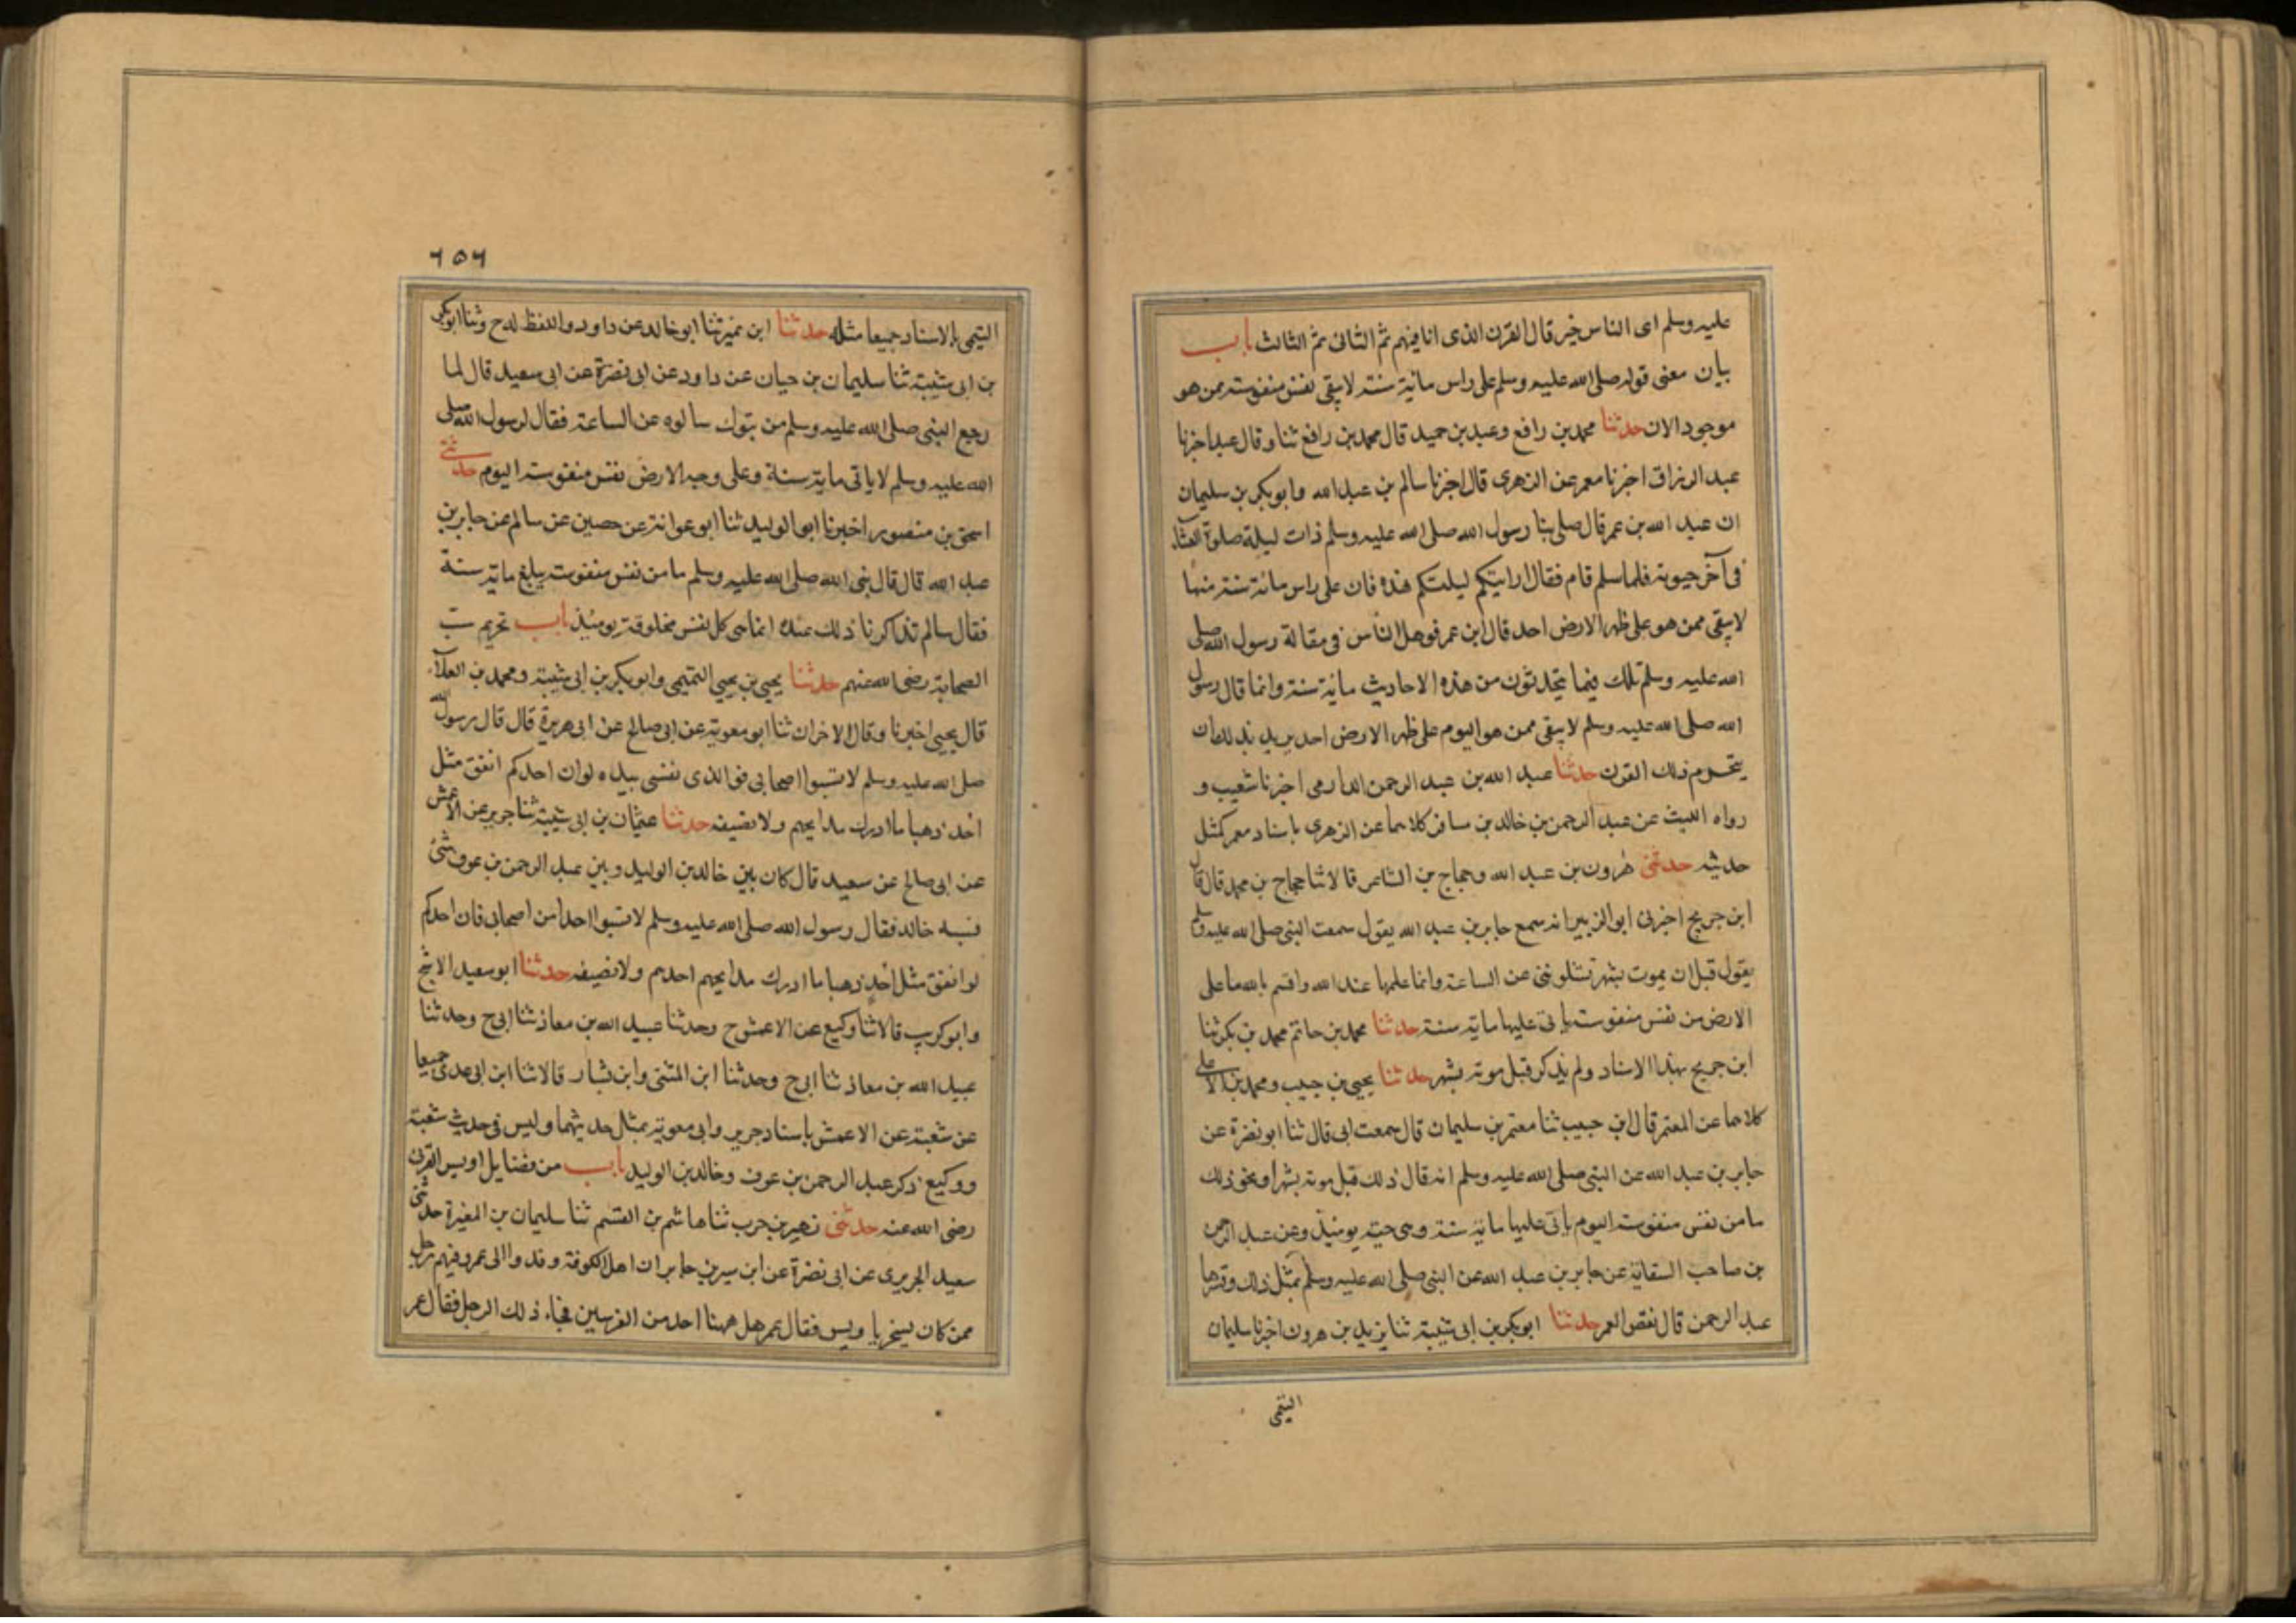 عليه وسلم اى الناس خير قال القرن الذى انا فيهم ثم الثانى ثم الثالث باب
بيان معنى قوله صلى الله عليه وسلم على راس مائة سنة لا يبقى نفس منفوسة ممن هو
موجود الان حدثنا محمد بن رافع وعبد بن حميد قال محمد بن رافع ثنا وقال عبد اخبرنا
عبد الرزاق اخبرنا معمر عن الزهرى قال اخبرنا سالم بن عبد الله وابو بكر بن سليمان
ان عبد الله بن عمر قال صلى بنا رسول الله صلى الله عليه وسلم ذات ليلة صلوة العشاء
فى آخر حيوته فلما سلم قام فقال ارايتكم ليلتكم هذه فان على راس مائة سنة منها
لا يبقى ممن هو على ظهر الارض احد قال ابن عمر فوهل الناس فى مقالة رسول الله صلى
الله عليه وسلم تلك فيما يتحدثون من هذه الاحاديث مائة سنة وانما قال رسول
الله صلى الله عليه وسلم لا يبقى ممن هو اليوم على ظهر الارض احد يريد بذلك ان
ينخرم ذلك القرن حدثنا عبد الله بن عبد الرحمن الدارمى اخبرنا شعيب و
رواه الليث عن عبد الرحمن بن خالد بن مسافر كلاهما عن الزهرى باسناد معمر كمثل
حديثه حدثنى هرون بن عبد الله وحجاج بن الشاعر قالا ثنا حجاج بن محمد قال قال
ابن جريج اخبرنى ابو الزبير انه سمع جابر بن عبد الله يقول سمعت النبى صلى الله عليه وسلم
يقول قبل ان يموت بشهر تسئلوننى عن الساعة وانما علمها عند الله واقسم بالله ما على
الارض من نفس منفوسة ياتى عليها ماية سنة حدثنا محمد بن حاتم محمد بن بكر ثنا
ابن جريج بهذا الاسناد ولم يذكر قبل موته بشهر حدثنا يحيى بن حبيب ومحمد بن الاعلى
كلاهما عن المعتمر قال ابن حبيب ثنا معتمر بن سليمان قال سمعت ابى قال ثنا ابو نضرة عن
جابر بن عبد الله عن النبى صلى الله عليه وسلم انه قال ذلك قبل موته بشهر او نحو ذلك
ما من نفس منفوسة اليوم ياتى عليها مائة سنة وهى حية يومئذ وعن عبد الرحمن
بن صاحب السقاية عن جابر بن عبد الله عن النبى صلى الله عليه وسلم بمثل ذلك وفسرها
عبد الرحمن قال نقص العمر حدثنا ابو بكر بن ابى شيبة ثنا يزيد بن هرون اخبرنا سليمان
التيمى
٦٥٦
التيمى بالاسناد جميعا مثله حدثنا ابن نمير ثنا ابو خالد عن داود واللفظ له ح وثنا ابو بكر
بن ابى شيبة ثنا سليمان بن حيان عن داود عن ابى نضرة عن ابى سعيد قال لما
رجع النبى صلى الله عليه وسلم من تبوك سالوه عن الساعة فقال لرسول الله صلى
الله عليه وسلم لا ياتى ماية سنة وعلى وجه الارض نفس منفوسة اليوم حدثنى
اسحق بن منصور اخبرنا ابو الوليد ثنا ابو عوانة عن حصين عن سالم عن جابر بن
عبد الله قال قال نبى الله صلى الله عليه وسلم ما من نفس منفوسة يبلغ ماية سنة
فقال سالم تذاكرنا ذلك عنده انما هى كل نفس مخلوقة يومئذ باب تحريم سب
الصحابة رضى الله عنهم حدثنا يحيى بن يحيى التميمى وابو بكر بن ابى شيبة ومحمد بن العلاء
قال يحيى اخبرنا وقال الاخران ثنا ابو معوية عن ابى صالح عن ابى هريرة قال قال رسول الله
صلى الله عليه وسلم لا تسبوا اصحابى فوالذى نفسى بيده لو ان احدكم انفق مثل
احد ذهبا ما ادرك مد ايحهم ولا نصيفه حدثنا عثمان بن ابى شيبة ثنا جرير عن الاعمش
عن ابى صالح عن سعيد قال كان بين خالد بن الوليد وبين عبد الرحمن بن عوف شئ
فسبه خالد فقال رسول الله صلى الله عليه وسلم لا تسبوا احدا من اصحابى فان احدكم
لو انفق مثل احد ذهبا ما ادرك مد ايحهم احدهم ولا نصيفه حدثنا ابو سعيد الاشج
وابو كريب قالا ثنا وكيع عن الاعمش ح وحدثنا عبيد الله بن معاذ ثنا ابى ح وحدثنا
عبيد الله بن معاذ ثنا ابى ح وحدثنا ابن المثنى وابن بشار قالا ثنا ابن ابى عدى جميعا
عن شعبة عن الاعمش باسناد جرير وابى معوية بمثل حديثهما وليس فى حديث شعبة
ووكيع ذكر عبد الرحمن بن عوف وخالد بن الوليد باب من فضايل اويس القرنى
رضى الله عنه حدثنى زهير بن حرب ثنا هاشم بن القسم ثنا سليمان بن المغيرة حدثنى
سعيد الجريرى عن ابى نضرة عن ابن سيرين جابر ان اهل الكوفة وفدوا الى عمر وفيهم رجل
ممن كان يسخر با ويس فقال عمر هل ههنا احد من القرنيين فجاء ذلك الرجل فقال عمر